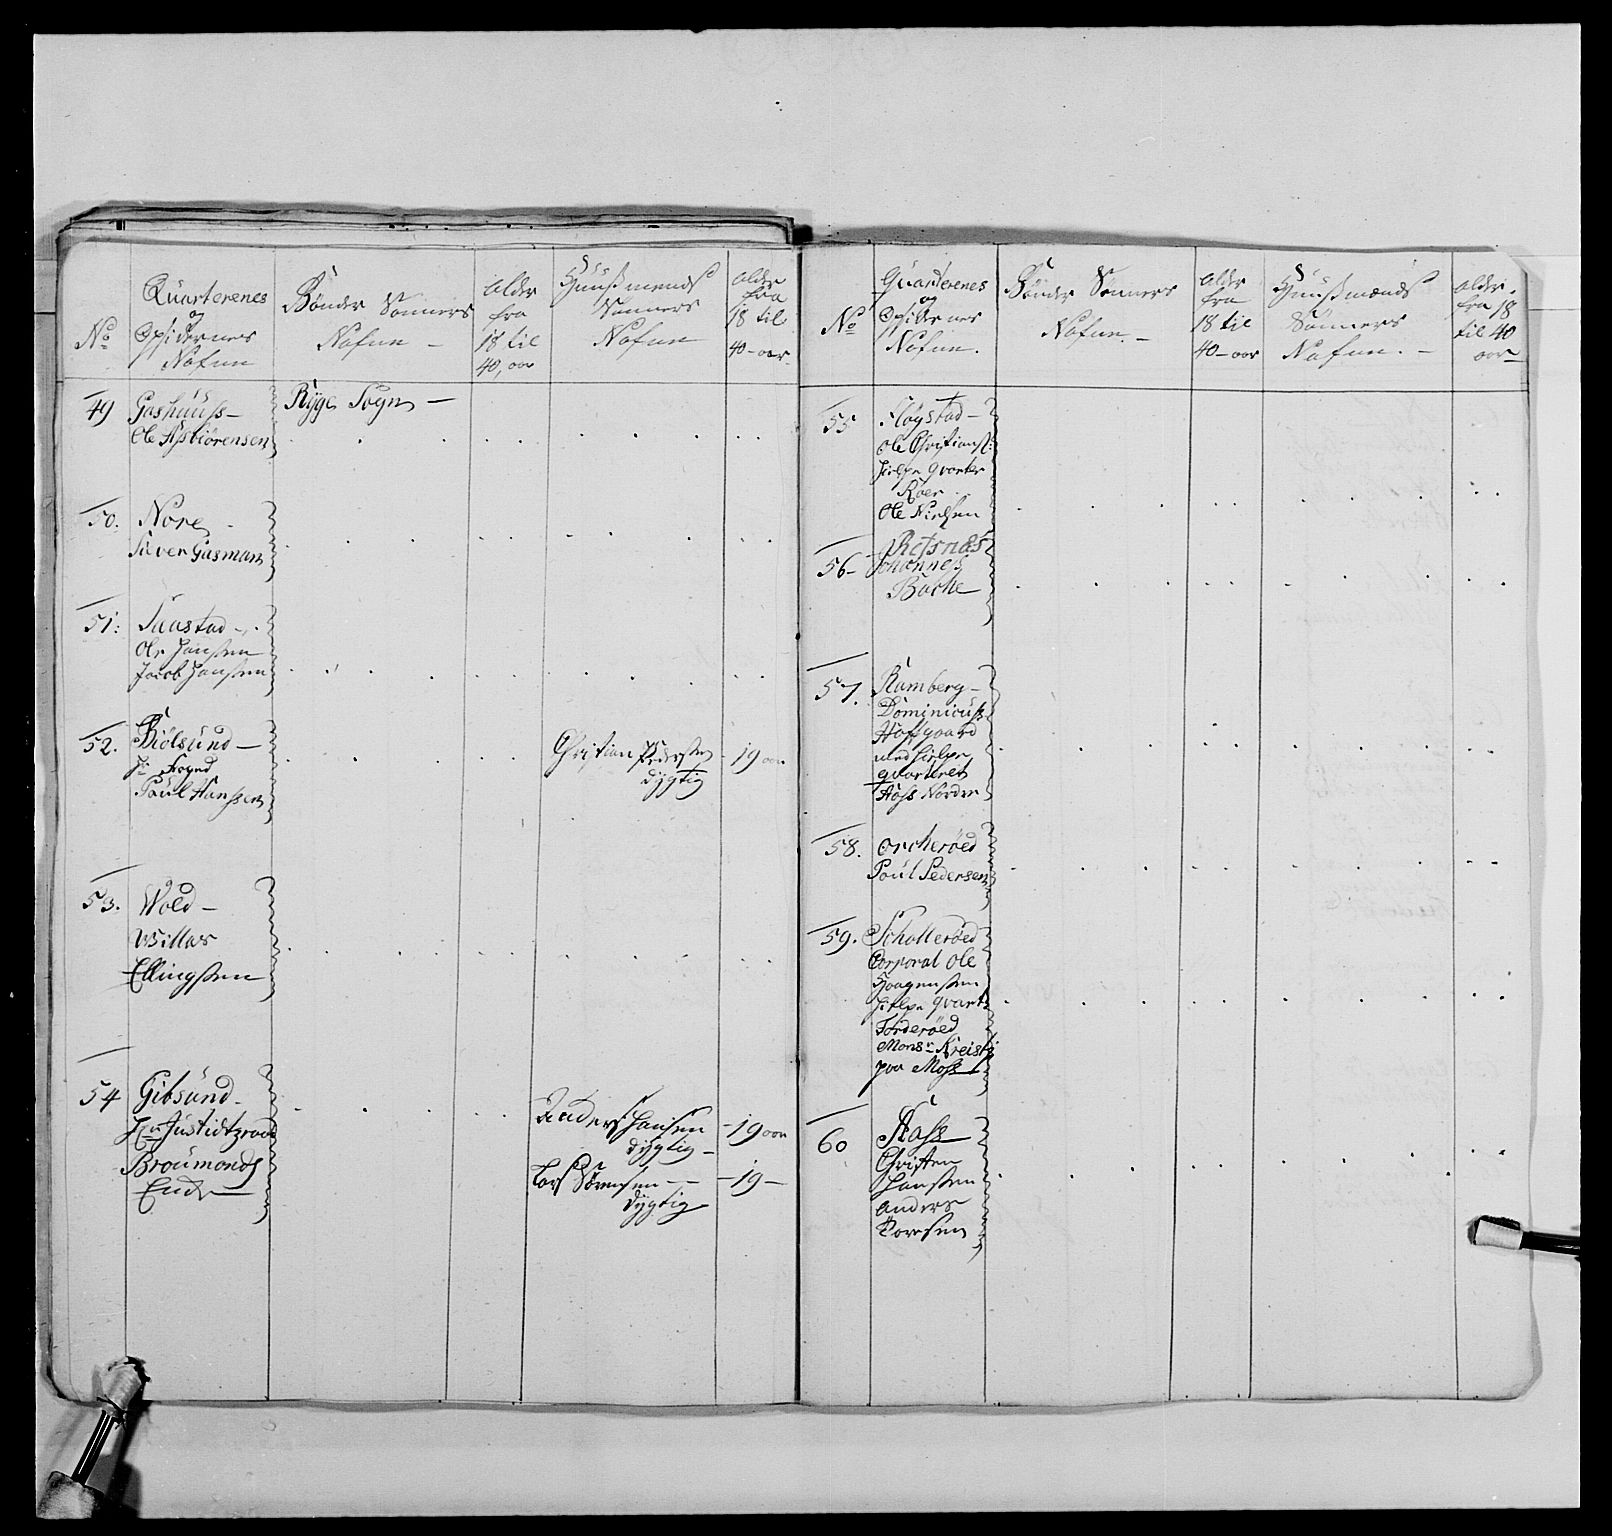 No
Quarterenes
og
Opsidernes
Nafne
Bønder Sønners
Nafne -
alder
fra
18 til
40, aar
Huusmends
Sønners
Nafne
alder
fra
18 til
40-aar
49 Gashuuss-
Ole Asbiörensen
Ryge Sogn -
50. Nore -
Siver Gasman
51: Taastad -
Ole Hanssen
Jacob Hanssen
52. Kiölsund -
Paul Hanssen
Christian Pedersen - 19 aar
dygtig
53. Wold -
Willas
Ellingssen
54 Gibsund -
Hr Justidtzraad
Broumonds
Enche
Anders Hansen - 19 aar
dygtig -
Lars Sörensen - - 19 -
dygtig
No
Quarterenes
og
Opsidernes
Nafne.
Bønder Sønners
Nafne. -
alder
fra
18 til
40-aar
Huusmænds
Sønners
Nafne. -
alder.
fra 18
til 40
aar
55 Fløystad -
Ole Christians:
Hielpe qvarter
Röer
Ole Nielsen
56- Refsnæs
Johannes
Bache
57. Ramberg -
Dominicuss
Hoffgaard
med hielpe
qvarteret
Höss Nordre
58. Orcheröed
Poul Pedersen
59. Scholleröed
Corporal Ole
Haagenssen
Hielpe qvart:
Torderöed
Monsr Kreisty
paa Moss
60
Christen
Hanssen
Anders
Toresen